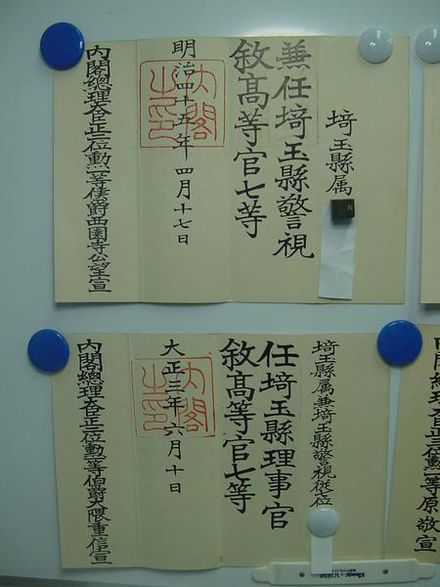 埼玉縣属
兼任埼玉縣警視
敘高等官七等
明治四十五年四月十七日
内閣之印
内閣總理大臣正二位勲一等侯爵西園寺公望宣
埼玉縣属兼埼玉縣警視從七位
任埼玉縣理事官
敘高等官七等
大正三年六月十日
内閣之印
内閣總理大臣正二位勲一等伯爵大隈重信宣
一等原敬宣